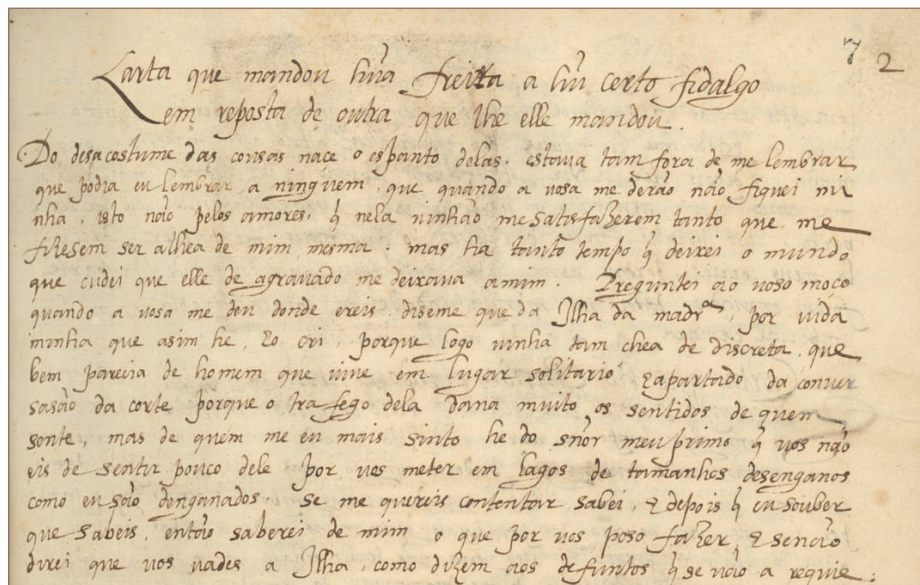 7 2
Carta que mandou hũa freira a hũ certo fidalgo
em reposta de outra que lhe elle mandou.
Do desacostume das cousas nace o espanto delas. estaua tam fora de me lembrar
que podia eu lembrar a ninguem, que quando a vosa me derão não fiquei mi
nha, isto não pelos amores, q̃ nela vinhão me satisfazerem tanto que me
fizesem ser alhea de mim mesma. mas ha tanto tempo q̃ deixei o mundo
que cudei que elle de agrauado me deixaua amim. Preguntei ao voso moço
quando a vosa me deu donde ereis. diseme que da Ilha da madrª, por vida
minha que asim he, Eo cri, porque logo vinha tam chea de discreta, que
bem parecia de homem que viue em lugar solitario Eapartado da conuer
sasão da corte porque o trafego dela dana muito os sentidos de quem
sente, mas de quem me eu mais sinto he do sñor meu primo q̃ vos não
eis de sentir pouco dele por vos meter em lagos de tamanhos desenganos
como eu são denganados. Se me quereis contentar sabei, E depois q̃ eu souber
que sabeis, então saberei de mim o que por vos poso fazer, E senão
direi que vos vades a Ilha, como dizem aos defuntos q̃ se vão a requie.